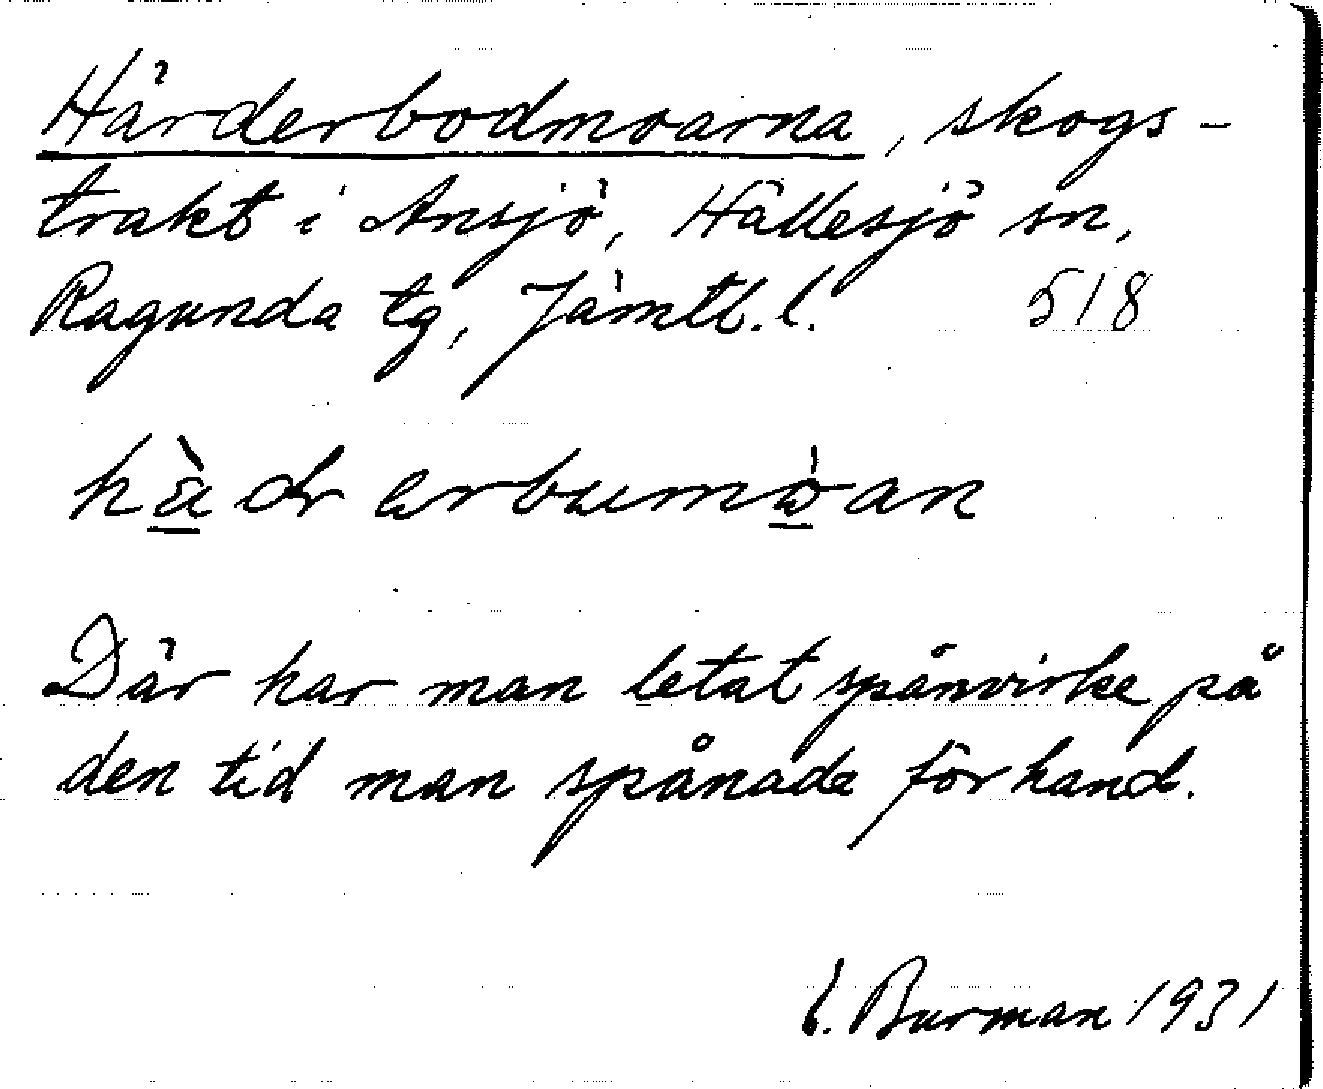 Härderbodmoarna, skogs-
trakt i Ansjö, Hällesjö sn,
Ragunda tg, Jämtl. l. 518
Där har man letat spånvirke på
den tid man spånade för hand.
E. Burman 1931